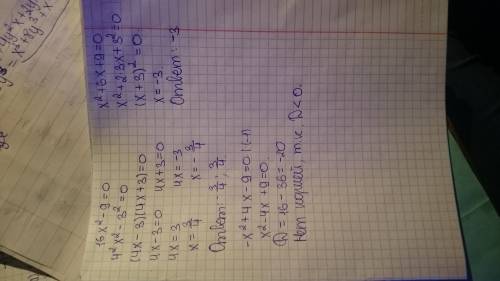 16x² - 9 = 0
4²x² - 3² = 0
(4x - 3)(4x + 3) = 0
4x - 3 = 0    4x + 3 = 0
4x = 3    4x = -3
x = 3/4    x = -3/4
Ответ: -3/4; 3/4.
-x² + 4x - 9 = 0 | (-1)
x² - 4x + 9 = 0.
D = 16 - 36 = -20
Нет решений, т.к. D < 0.
x² + 6x + 9 = 0
x² + 2·3x + 3² = 0
(x + 3)² = 0
x = -3.
Ответ: -3